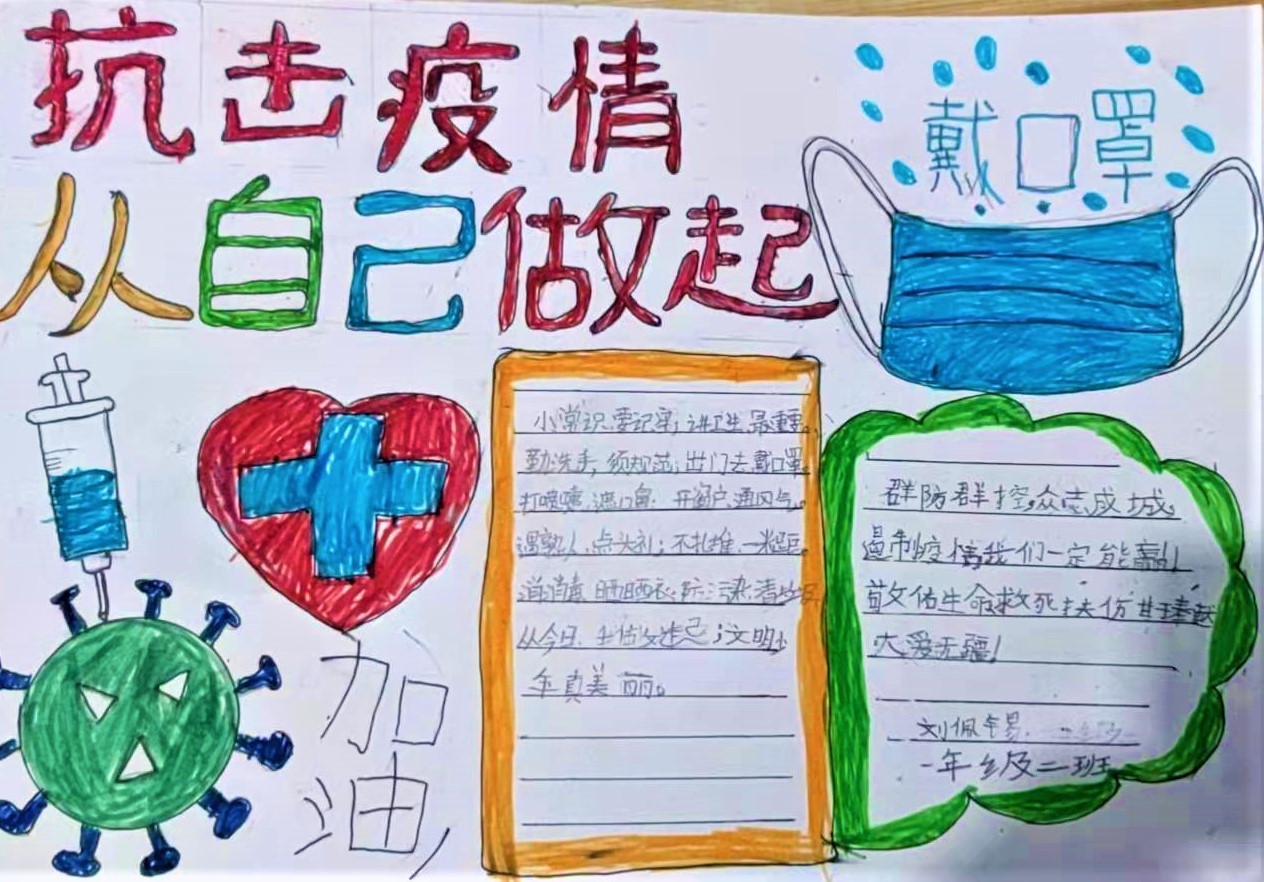 抗击疫情
从自己做起
戴口罩
小常识,要记牢;讲卫生,最重要。
勤洗手,须规范;出门去,戴口罩。
打喷嚏,遮口鼻;开窗户,通风气。
遇熟人,点头礼;不扎堆,一米距。
消消毒,晒晒衣;防污染,清垃圾
从今日,去做起;文明少
年真美丽。
群防群控,众志成城。
遏制疫情我们一定能赢!
敬佑生命救死扶伤甘奉献
大爱无疆!
刘佩
一年级二班
加
油